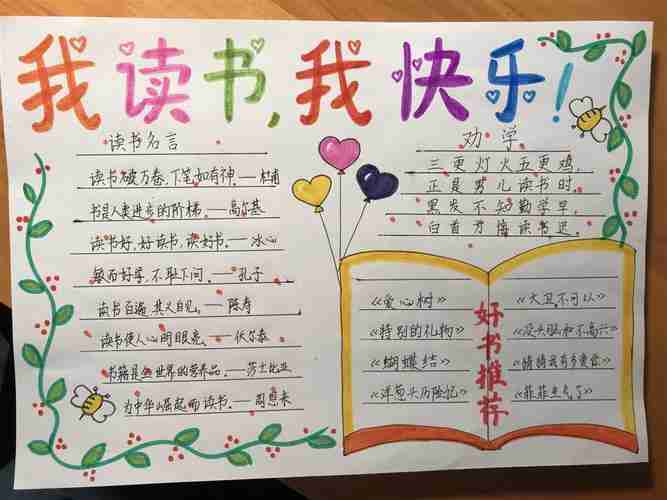 我读书,我快乐!
读书名言
读书破万卷,下笔如有神.——杜甫
书是人类进步的阶梯.——高尔基
读书好,好读书,读好书.——冰心
敏而好学,不耻下问.——孔子
读书百遍,其义自见.——陈寿
读书使人心明眼亮.——伏尔泰
书籍是全世界的营养品.——莎士比亚
为中华崛起而读书.——周恩来
劝学
三更灯火五更鸡,
正是男儿读书时,
黑发不知勤学早,
白首方悔读书迟。
好书推荐
《爱心树》
《特别的礼物》
《蝴蝶结》
《洋葱头历险记》
《大卫,不可以》
《没头脑和不高兴》
《猜猜我有多爱你》
《菲菲生气了》